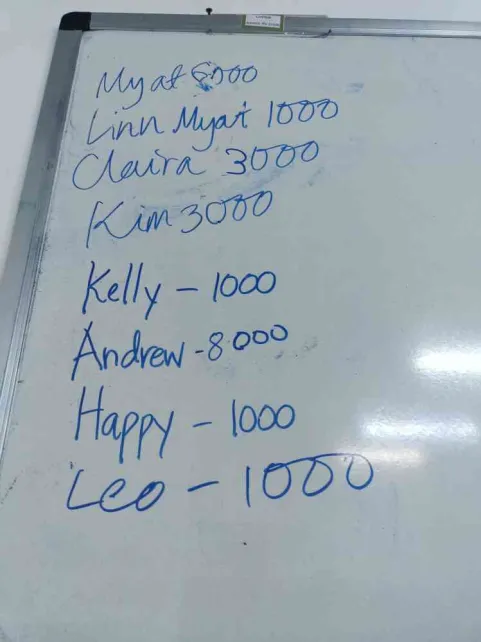 Myat 5000
Linn Myat 1000
Claira 3000
Kim 3000
Kelly - 1000
Andrew - 8000
Happy - 1000
Leo - 1000